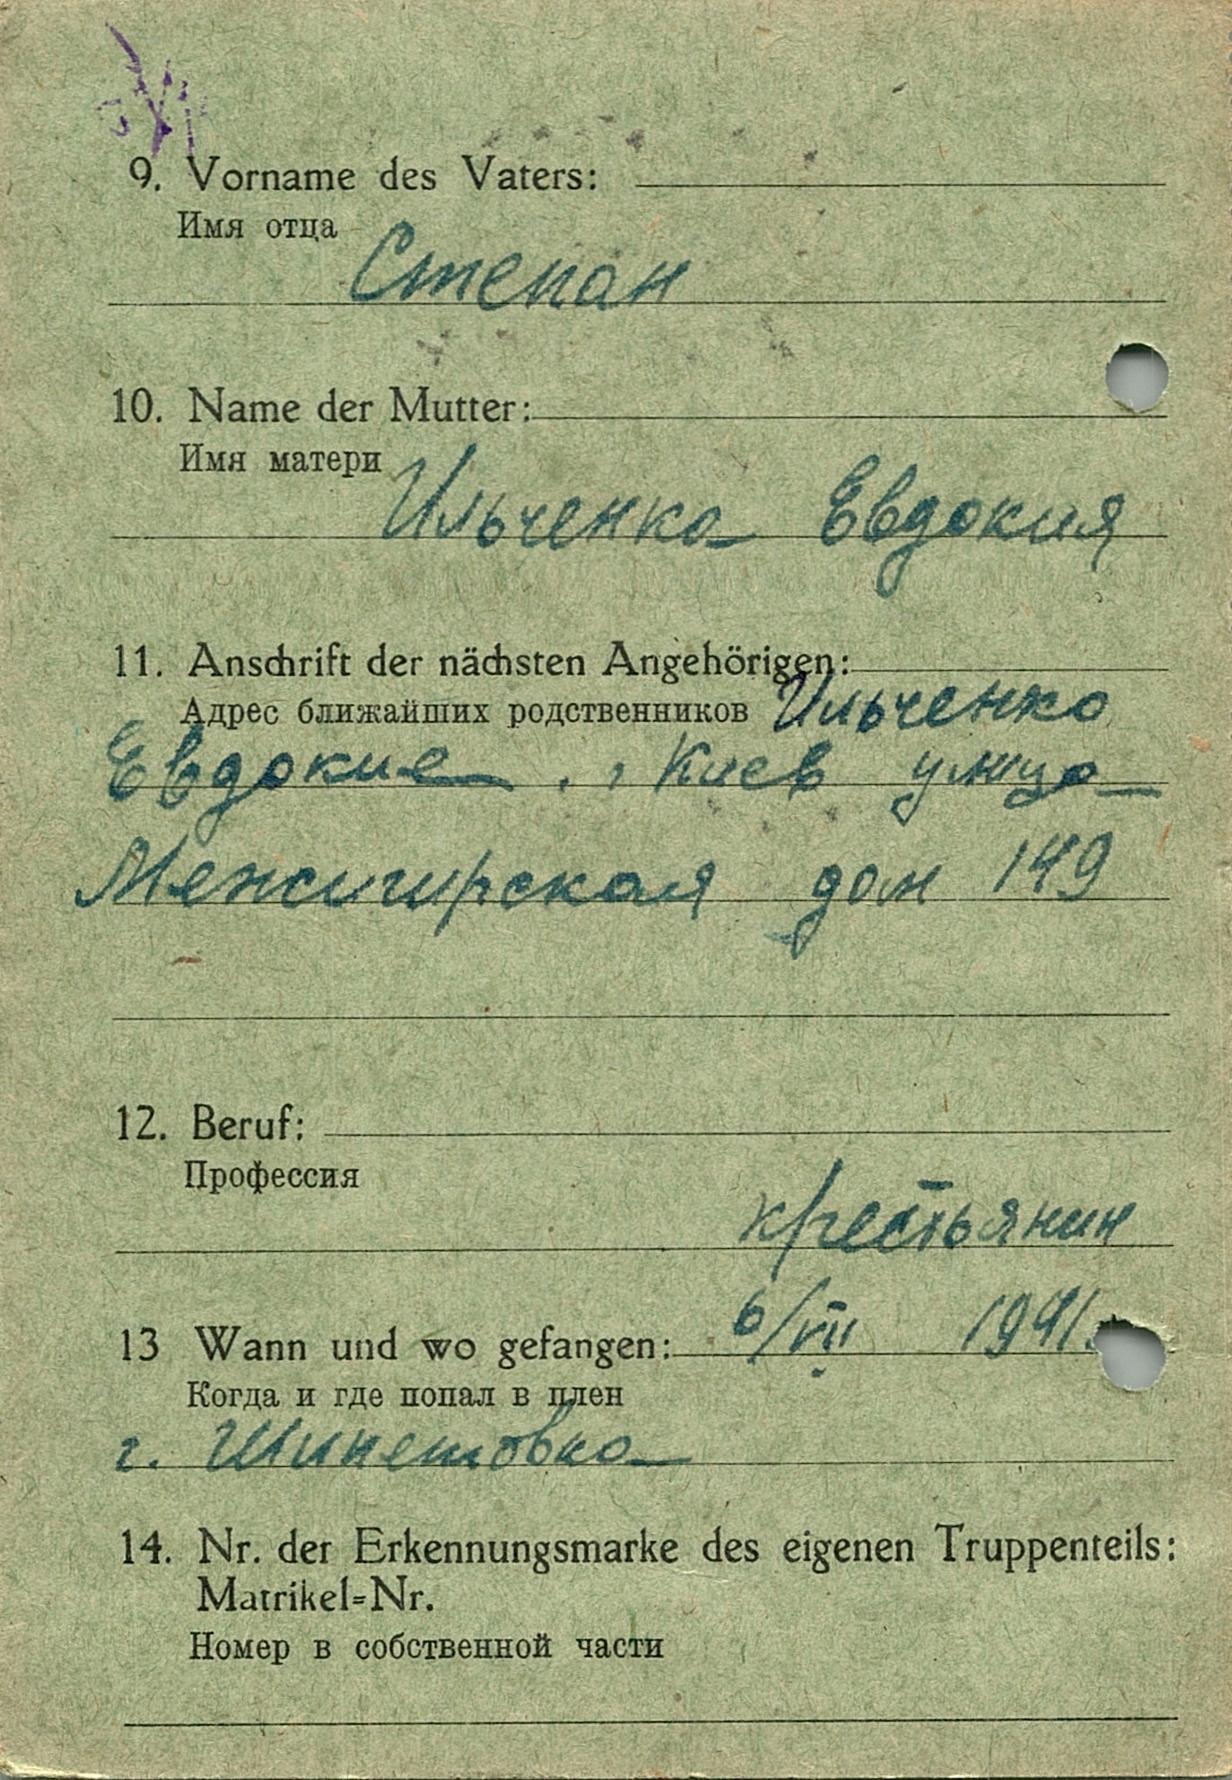 9. Vorname des Vaters:
Имя отца
Степан
10. Name der Mutter:
Имя матери
Ильченко Евдокия
11. Anschrift der nächsten Angehörigen:
Адрес ближайших родственников Ильченко
Евдокие , Киев улица
Менсигирская дом 149
12. Beruf:
Профессия
крестьянин
13 Wann und wo gefangen: 6/VII 1941.
Когда и где попал в плен
г. Шипетовка
14. Nr. der Erkennungsmarke des eigenen Truppenteils:
Matrikel=Nr.
Номер в собственной части